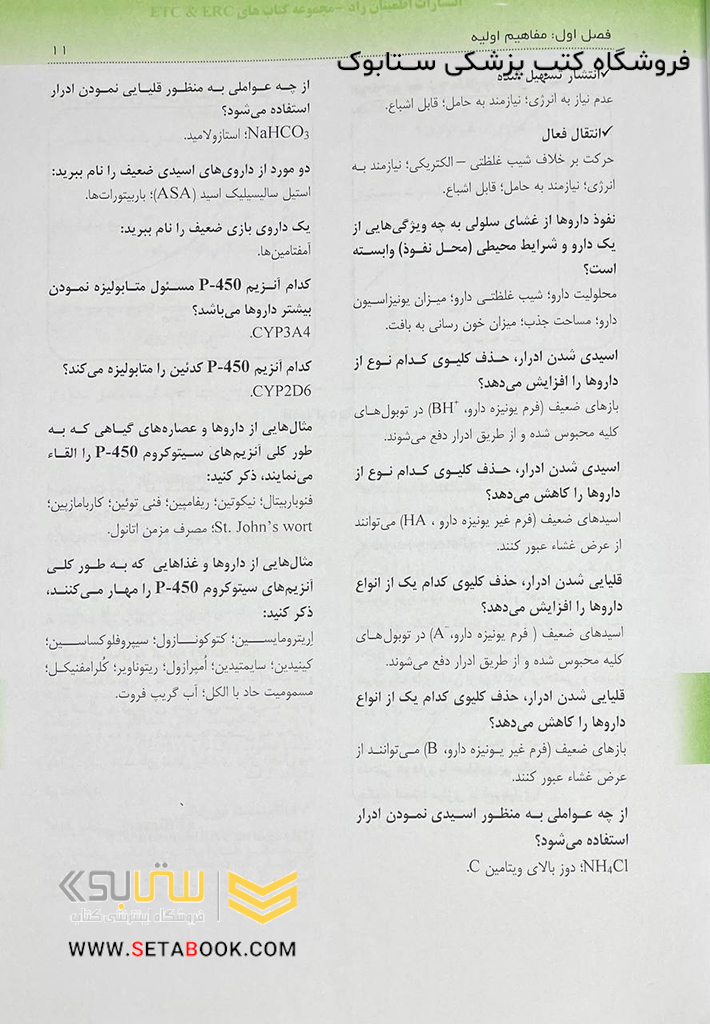 انتشارات اطمینان راد -مجموعه کتاب های ETC & ERC
فصل اول: مفاهیم اولیه
۱۱
فروشگاه کتب پزشکی ستابوک
✓انتشار تسهیل شده
عدم نیاز به انرژی؛ نیازمند به حامل؛ قابل اشباع.
✓انتقال فعال
حرکت بر خلاف شیب غلظتی – الکتریکی؛ نیازمند به
انرژی؛ نیازمند به حامل؛ قابل اشباع.
نفوذ داروها از غشای سلولی به چه ویژگی‌هایی از
یک دارو و شرایط محیطی (محل نفوذ) وابسته
است؟
محلولیت دارو؛ شیب غلظتی دارو؛ میزان یونیزاسیون
دارو؛ مساحت جذب؛ میزان خون رسانی به بافت.
اسیدی شدن ادرار، حذف کلیوی کدام نوع از
داروها را افزایش می‌دهد؟
بازهای ضعیف (فرم یونیزه دارو، BH⁺) در توبول‌های
کلیه محبوس شده و از طریق ادرار دفع می‌شوند.
اسیدی شدن ادرار، حذف کلیوی کدام نوع از
داروها را کاهش می‌دهد؟
اسیدهای ضعیف (فرم غیر یونیزه دارو ، HA) می‌توانند
از عرض غشاء عبور کنند.
قلیایی شدن ادرار، حذف کلیوی کدام یک از انواع
داروها را افزایش می‌دهد؟
اسیدهای ضعیف ( فرم یونیزه دارو، A⁻) در توبول‌های
کلیه محبوس شده و از طریق ادرار دفع می‌شوند.
قلیایی شدن ادرار، حذف کلیوی کدام یک از انواع
داروها را کاهش می‌دهد؟
بازهای ضعیف (فرم غیر یونیزه دارو، B) می‌توانند از
عرض غشاء عبور کنند.
از چه عواملی به منظور اسیدی نمودن ادرار
استفاده می‌شود؟
NH₄Cl؛ دوز بالای ویتامین C.
از چه عواملی به منظور قلیایی نمودن ادرار
استفاده می‌شود؟
NaHCO₃؛ استازولامید.
دو مورد از داروی‌های اسیدی ضعیف را نام ببرید:
استیل سالیسیلیک اسید (ASA)؛ باربیتورات‌ها.
یک داروی بازی ضعیف را نام ببرید:
آمفتامین‌ها.
کدام آنزیم P-450 مسئول متابولیزه نمودن
بیشتر داروها می‌باشد؟
CYP3A4.
کدام آنزیم P-450 کدئین را متابولیزه می‌کند؟
CYP2D6.
مثال‌هایی از داروها و عصاره‌های گیاهی که به
طور کلی آنزیم‌های سیتوکروم P-450 را القاء
می‌نمایند، ذکر کنید:
فنوباربیتال؛ نیکوتین؛ ریفامپین؛ فنی توئین؛ کاربامازپین؛
St. John's wort؛ مصرف مزمن اتانول.
مثال‌هایی از داروها و غذاهایی که به طور کلی
آنزیم‌های سیتوکروم P-450 را مهار می‌کنند،
ذکر کنید:
اِریترومایسین؛ کتوکونازول؛ سیپروفلوکساسین؛
کینیدین؛ سایمتیدین؛ اُمپرازول؛ ریتوناویر؛ کُلرامفنیکل؛
مسمومیت حاد با الکل؛ آب گریپ فروت.
ستابوک
فروشگاه اینترنتی کتاب
WWW.SETABOOK.COM